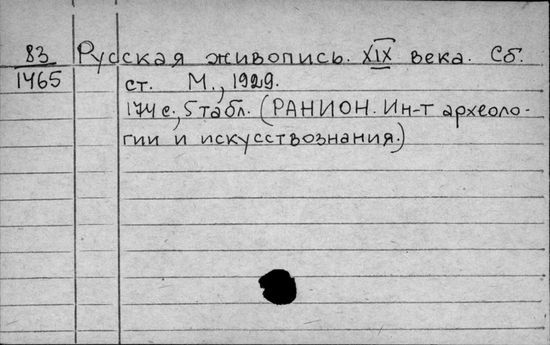 83 Русская живопись. XIX века. Сб.
1465 ст. М., 1929.
174 с., 5 табл. (РАНИОН. Ин-т археоло-
гии и искусствознания.)